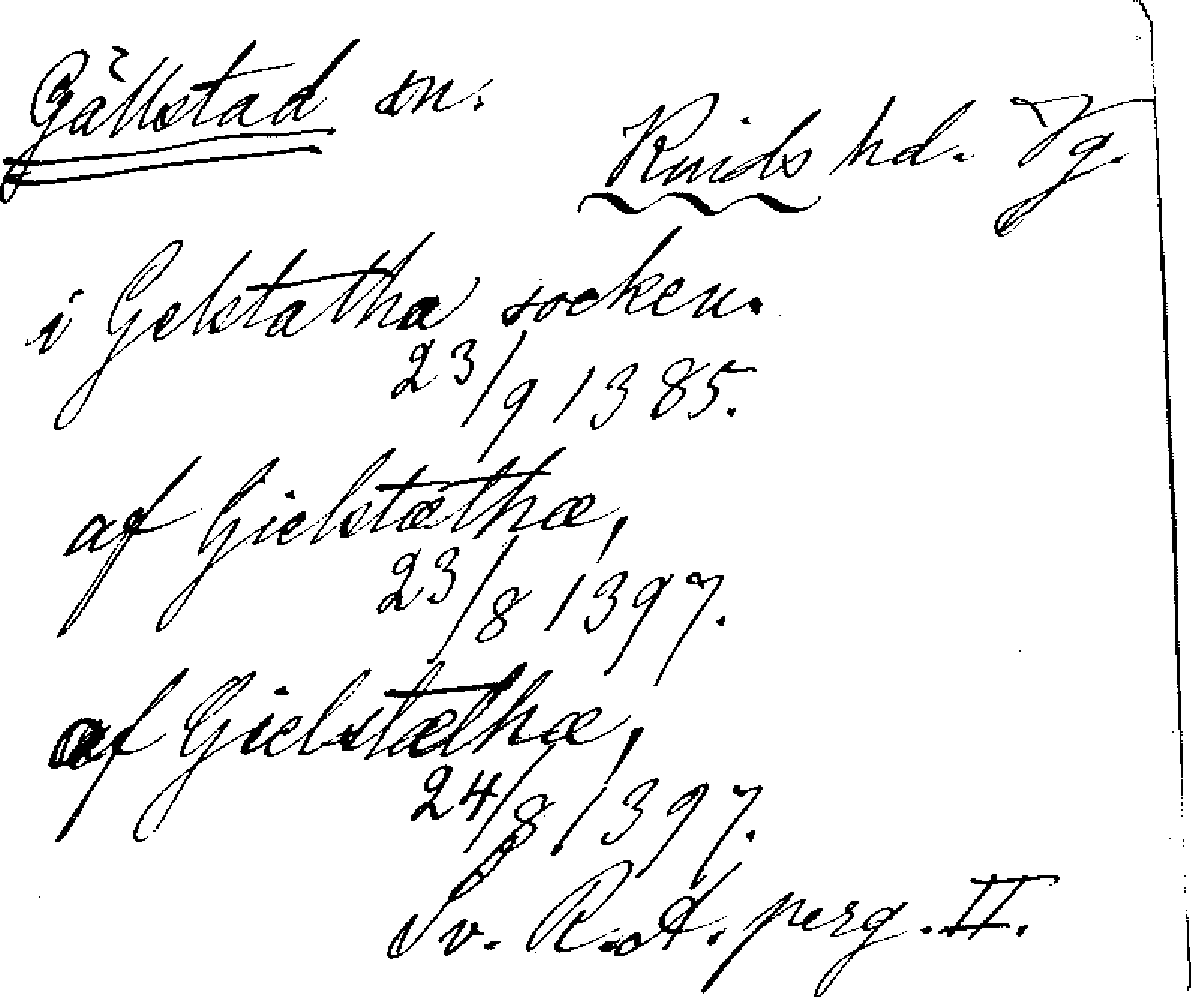 Gällstad sn.
Kinds hd. Vg.
i Gelstatha socken.
23/9 1385.
af Gielstæthæ,
23/8 1397.
af Gielstæthæ,
24/8 1397.
Sv. R. A. perg. II.